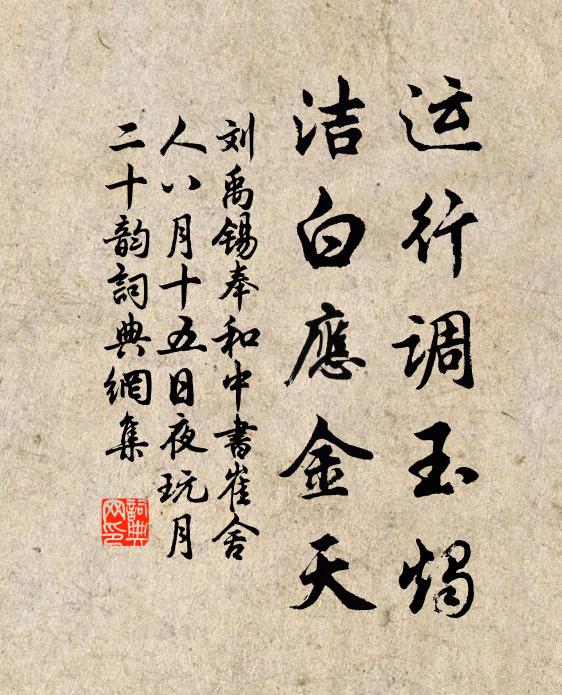 运行调玉烛
洁白應金天
刘禹锡奉和中書崔舍
人八月十五日夜玩月
二十韵詞典網集
詞典
网印